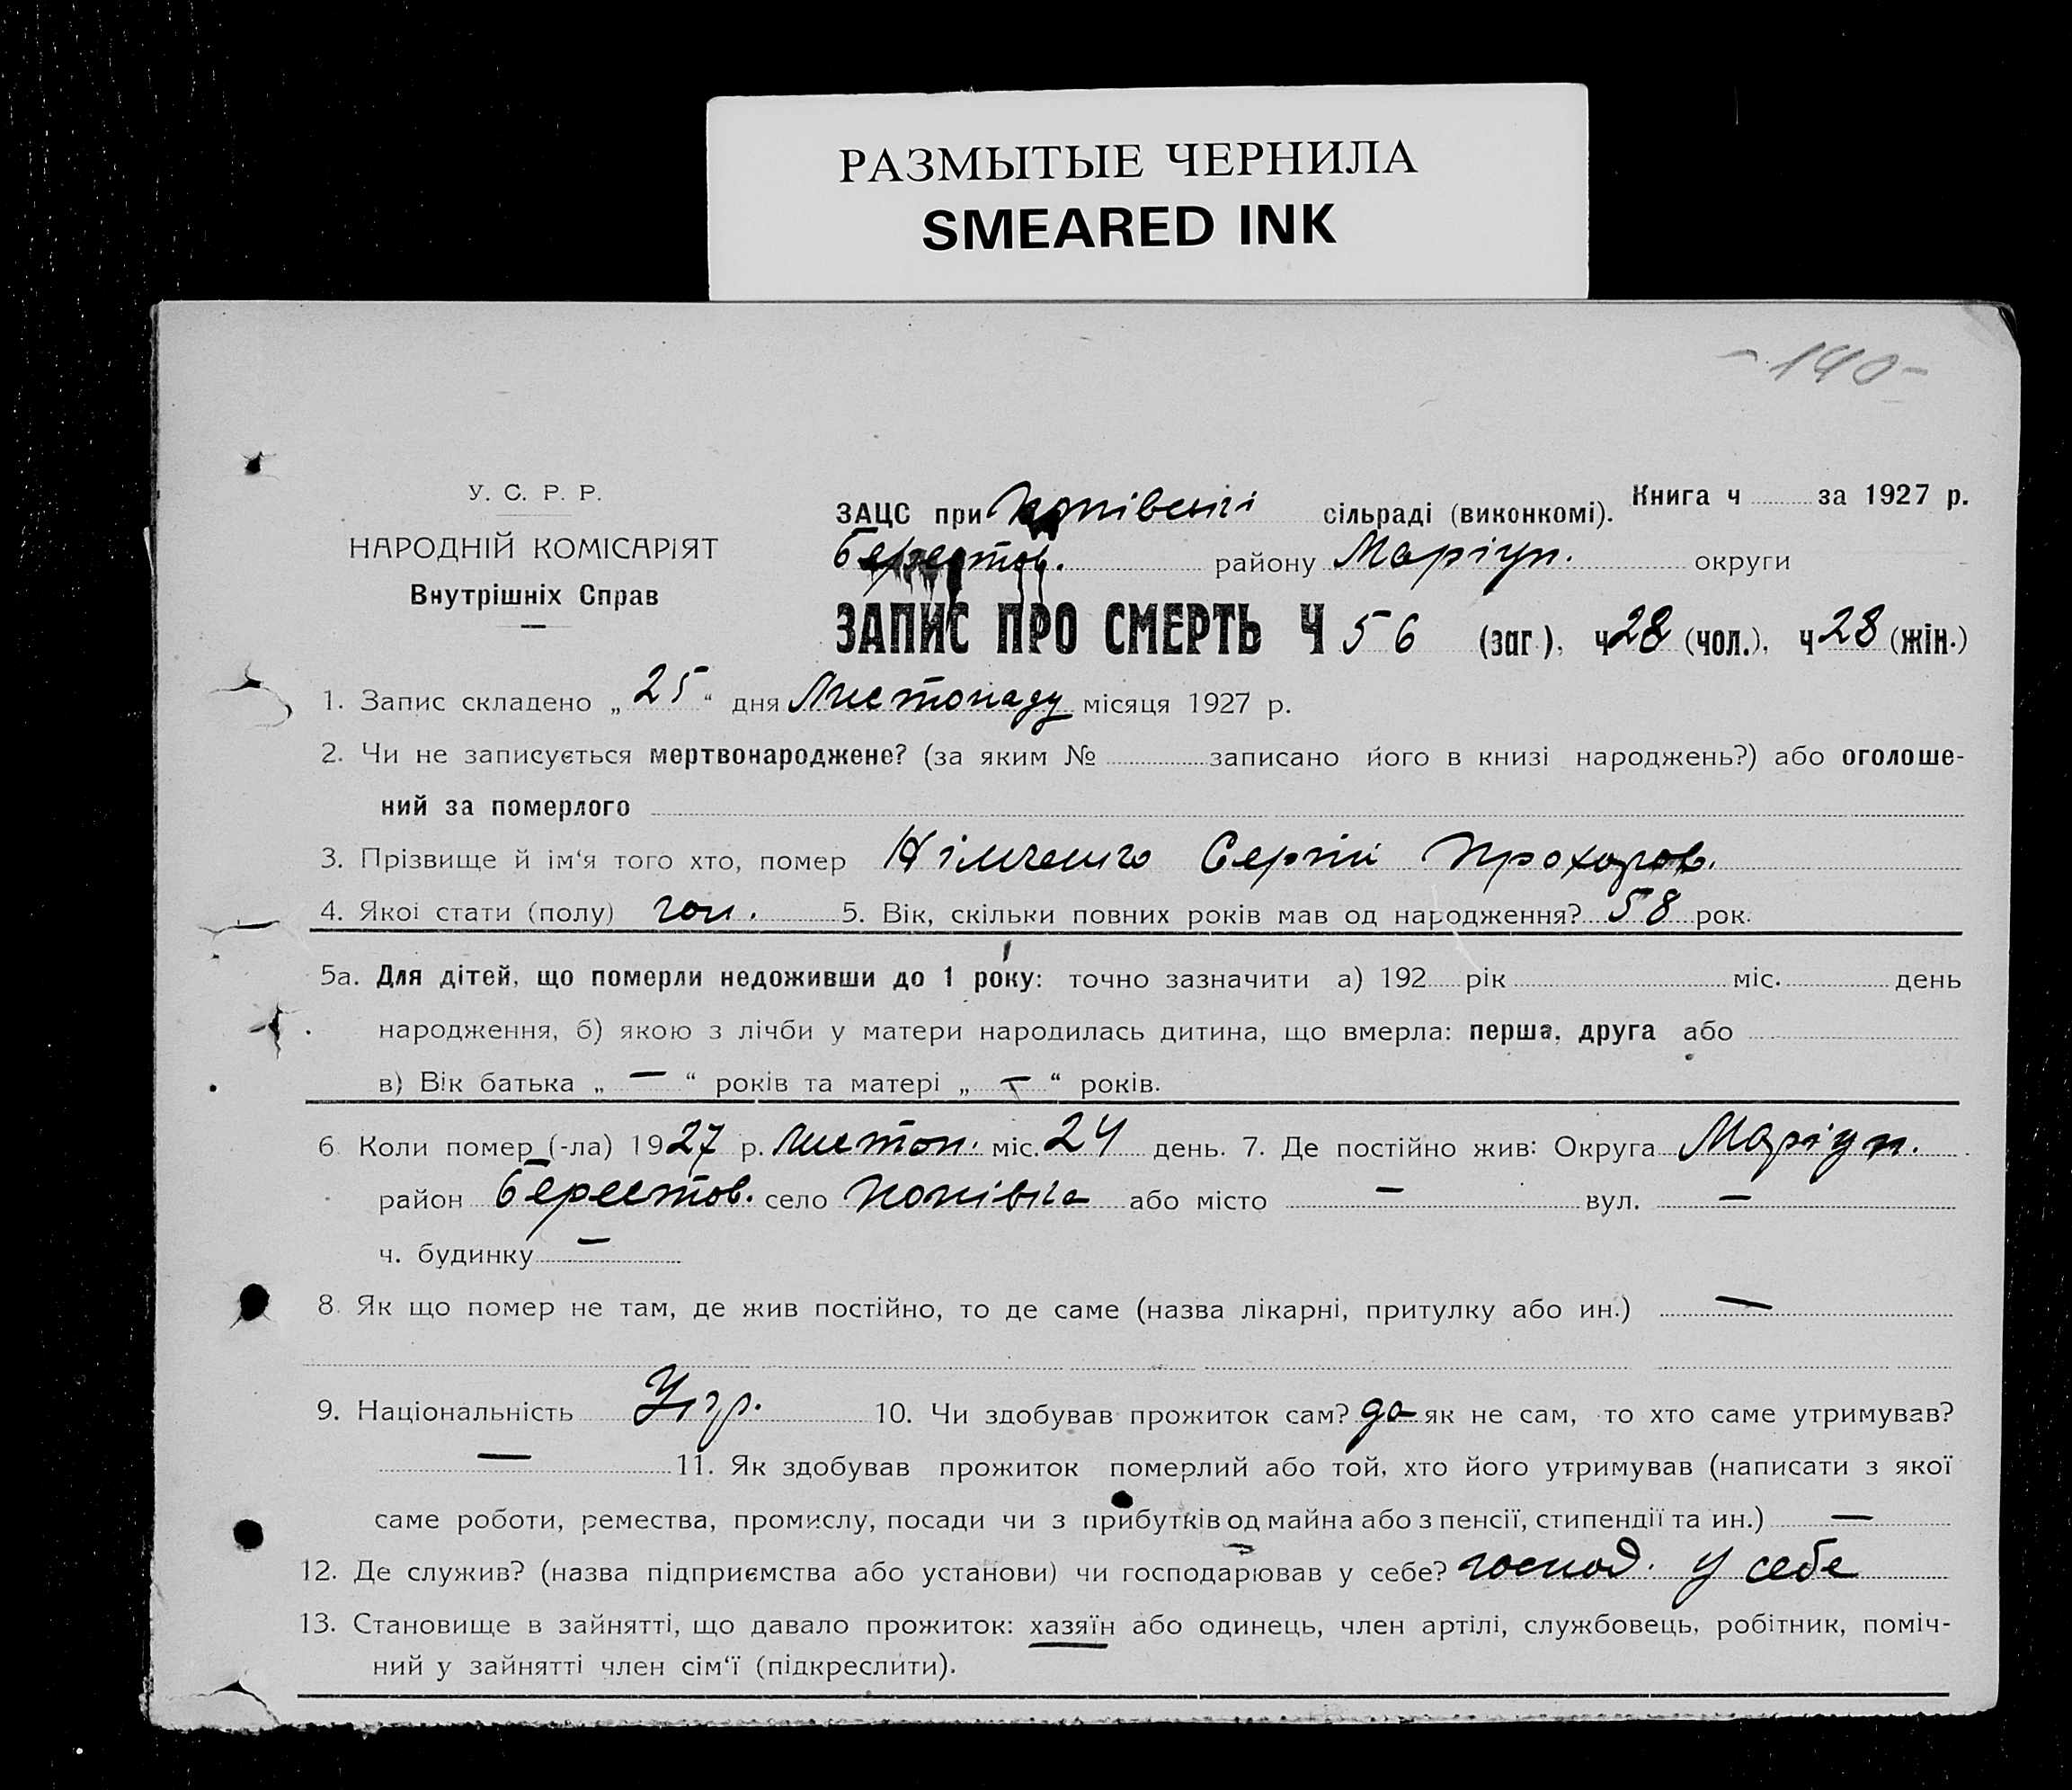 РАЗМЫТЫЕ ЧЕРНИЛА
SMEARED INK
- 140 -
У. С. Р. Р.
НАРОДНІЙ КОМІСАРІЯТ
Внутрішніх Справ
Книга ч за 1927 р.
ЗАЦС при Попівській сільраді (виконкомі).
Берестов. району Маріуп. округи
ЗАПИС ПРО СМЕРТЬ Ч 56 (заг.), ч 28 (чол.), ч 28 (жін.)
1. Запис складено „ 25 “ дня Листопаду місяця 1927 р.
2. Чи не записується мертвонароджене? (за яким № записано його в книзі народжень?) або оголоше-
ний за померлого
3. Прізвище й ім‘я того хто, помер Німченко Сергій Прохоров.
4. Якої стати (полу) чол. 5. Вік, скільки повних років мав од народження? 58 рок.
5а. Для дітей, що померли недоживши до 1 року: точно зазначити а) 192 рік міс. день
народження, б) якою з лічби у матери народилась дитина, що вмерла: перша, друга або
в) Вік батька „ — “ років та матері „ — “ років.
6. Коли помер (-ла) 1927 р. листоп. міс. 24 день. 7. Де постійно жив: Округа Маріуп.
район Берестов. село Попівка або місто — вул. —
ч. будинку —
8. Як що помер не там, де жив постійно, то де саме (назва лікарні, притулку або ин.) —
9. Національність Укр. 10. Чи здобував прожиток сам? да як не сам, то хто саме утримував?
— 11. Як здобував прожиток померлий або той, хто його утримував (написати з якої
саме роботи, ремества, промислу, посади чи з прибутків од майна або з пенсії, стипендії та ин.) —
12. Де служив? (назва підприємства або установи) чи господарював у себе? господ. у себе
13. Становище в зайнятті, що давало прожиток: хазяїн або одинець, член артілі, службовець, робітник, поміч-
ний у зайнятті член сім‘ї (підкреслити).